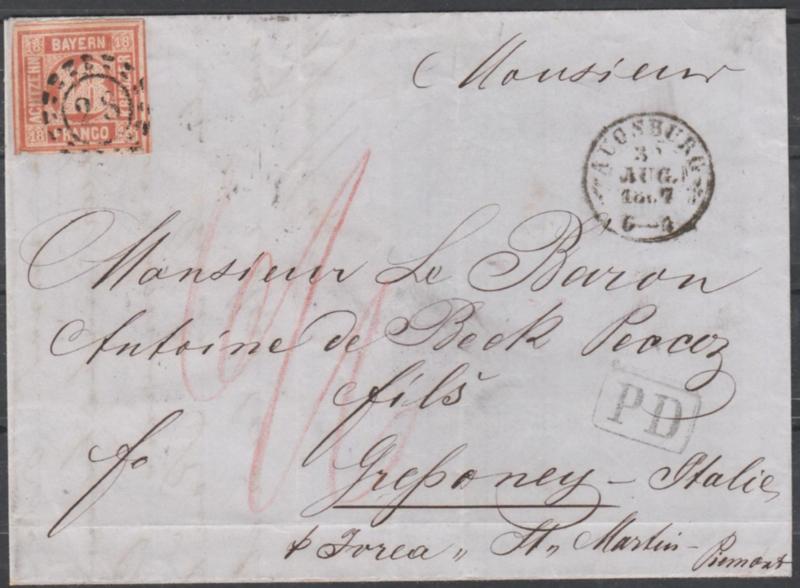 18 BAYERN 18
ACHTZEHN
KREUZER
18 FRANCO 18
28
Monsieur
AUGSBURG
AUG.
1867
Monsieur Le Baron
Antoine de Beck Peccoz
fils
fo
PD
Greßoney – Italie
p Ivrea „ St„ Martin –
Piemont